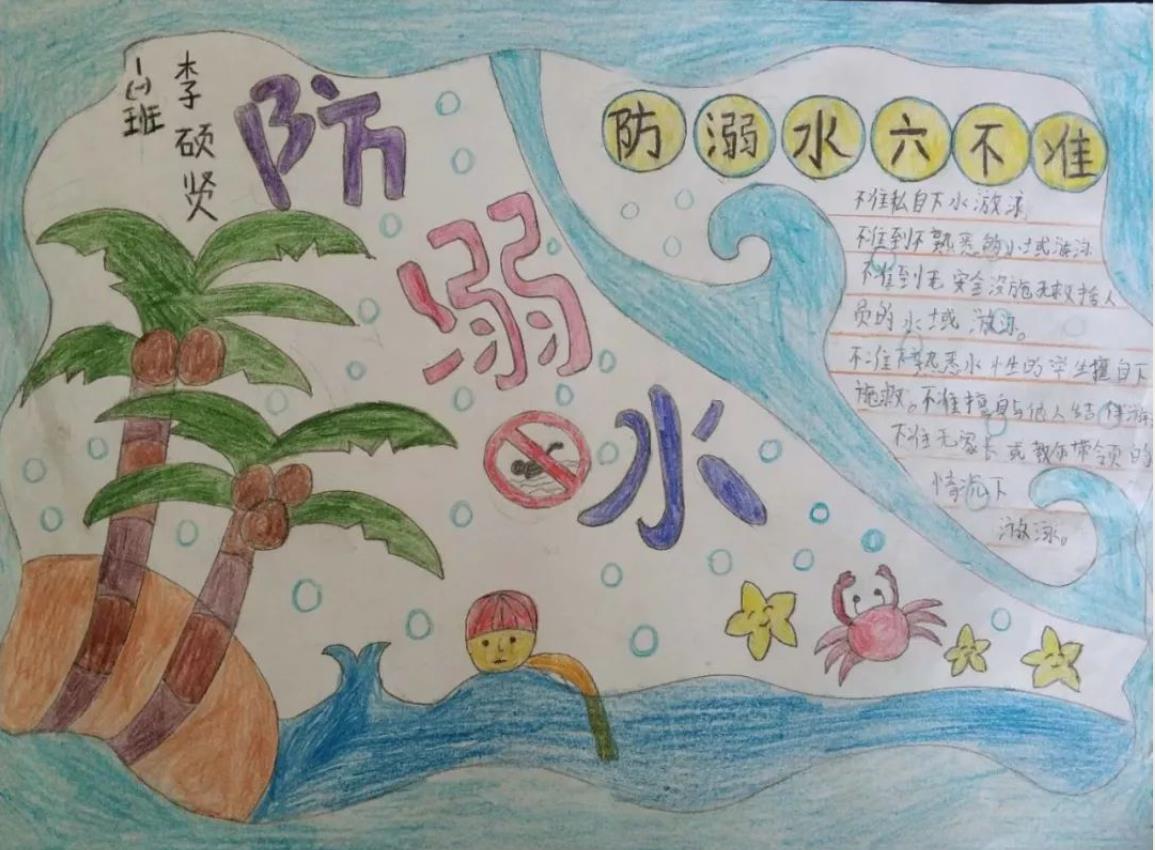 班
李硕贤
防
溺
水
防溺水六不准
不准私自下水游泳
不准到不熟悉的水域游泳
不准到无安全设施无救人
员的水域游泳。
不准不熟悉水性的学生擅自下
施救。不准擅自与他人结伴游
不准无家长或教师带领的
情况下
游泳。